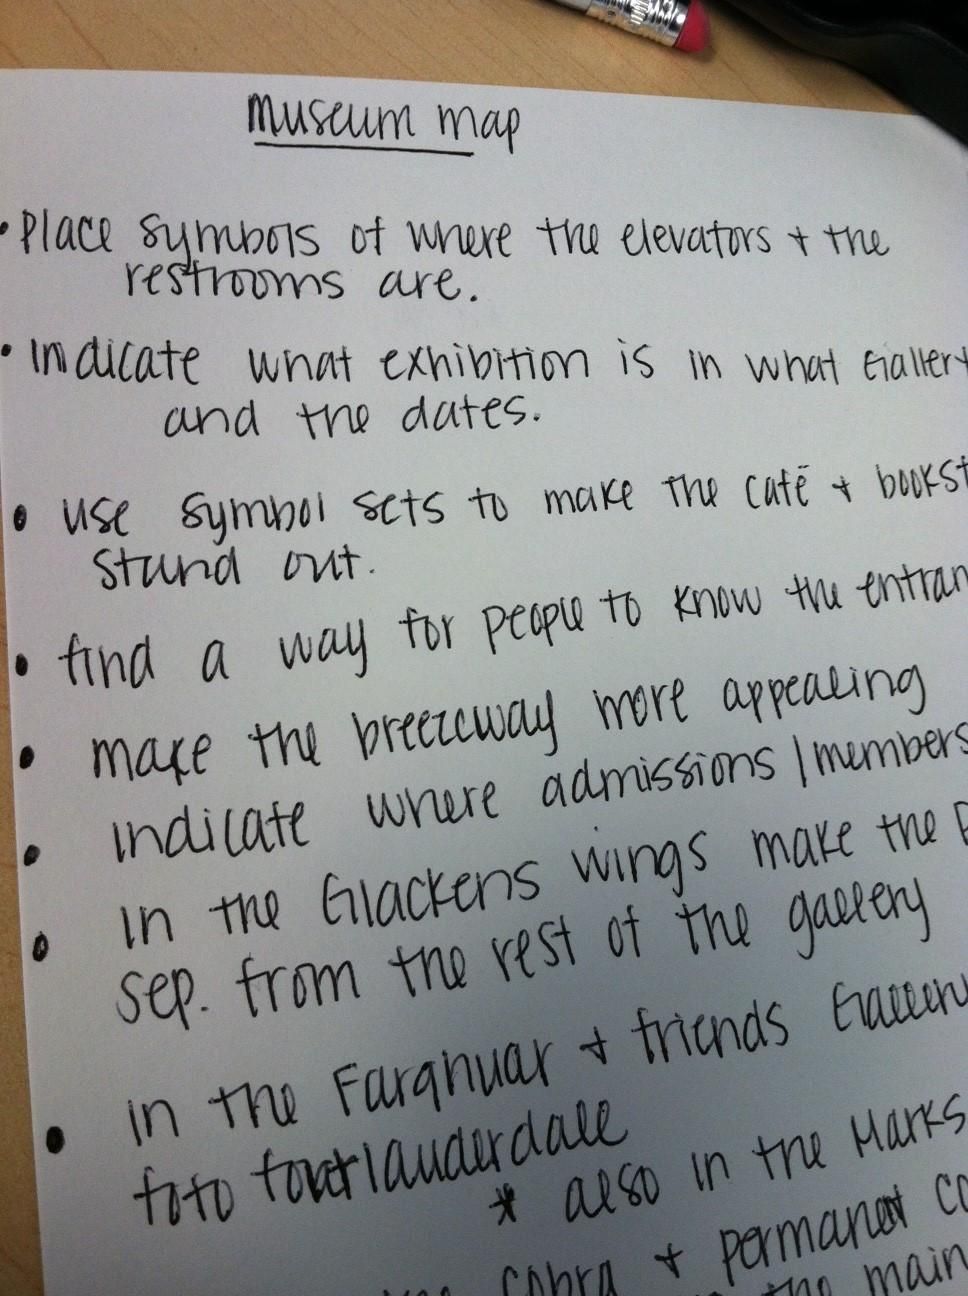 museum map
• Place symbols of where the elevators + the
restrooms are.
• Indicate what exhibition is in what Galler
and the dates.
• use symbol sets to make the café + bookst
stand out.
• find a way for people to know the entran
• make the breezeway more appealing
• indicate where admissions / members
• In the Glackens wings make the
sep. from the rest of the gallery
• In the Farqhuar + friends Gallery
foto fourtlauderdale
* also in the Marks
Cobra + permanent co
the main